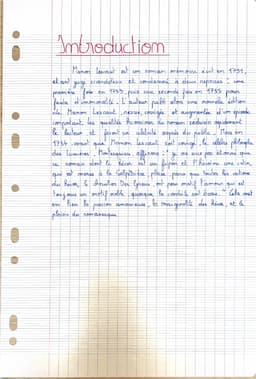 Introduction
Manon Lescaut est un roman mémoires écrit en 1731,
et sont jugé scandaleux et condamné à deux reprises : une
première fois en 1733 puis une seconde fois en 1735 pour
faute d'immoralité. L'auteur publie alors une nouvelle édition
de Manon Lescaut, revue, corrigée et augmentée d'un épisode
important, les qualités du roman séduisent rapidement
le lecteur et font un célébrité auprès du public. Mais en
1734, avant que Manon Lescaut soit corrigé, le célèbre philosophe
des Lumières, Montesquieu, affirme : " je ne suis pas étonné que
ce roman dont le héros est un fripon et l'héroïne une catin,
qui est menée à la Salpêtrière, plaise, parce que toutes les actions
du héros, le chevalier Des Grieux, ont pour motif l'amour qui est
toujours un motif noble, quoique la conduite soit basse. " Cela met
en lien la passion amoureuse, la marginalité des héros, et le
plaisir du romanesque.